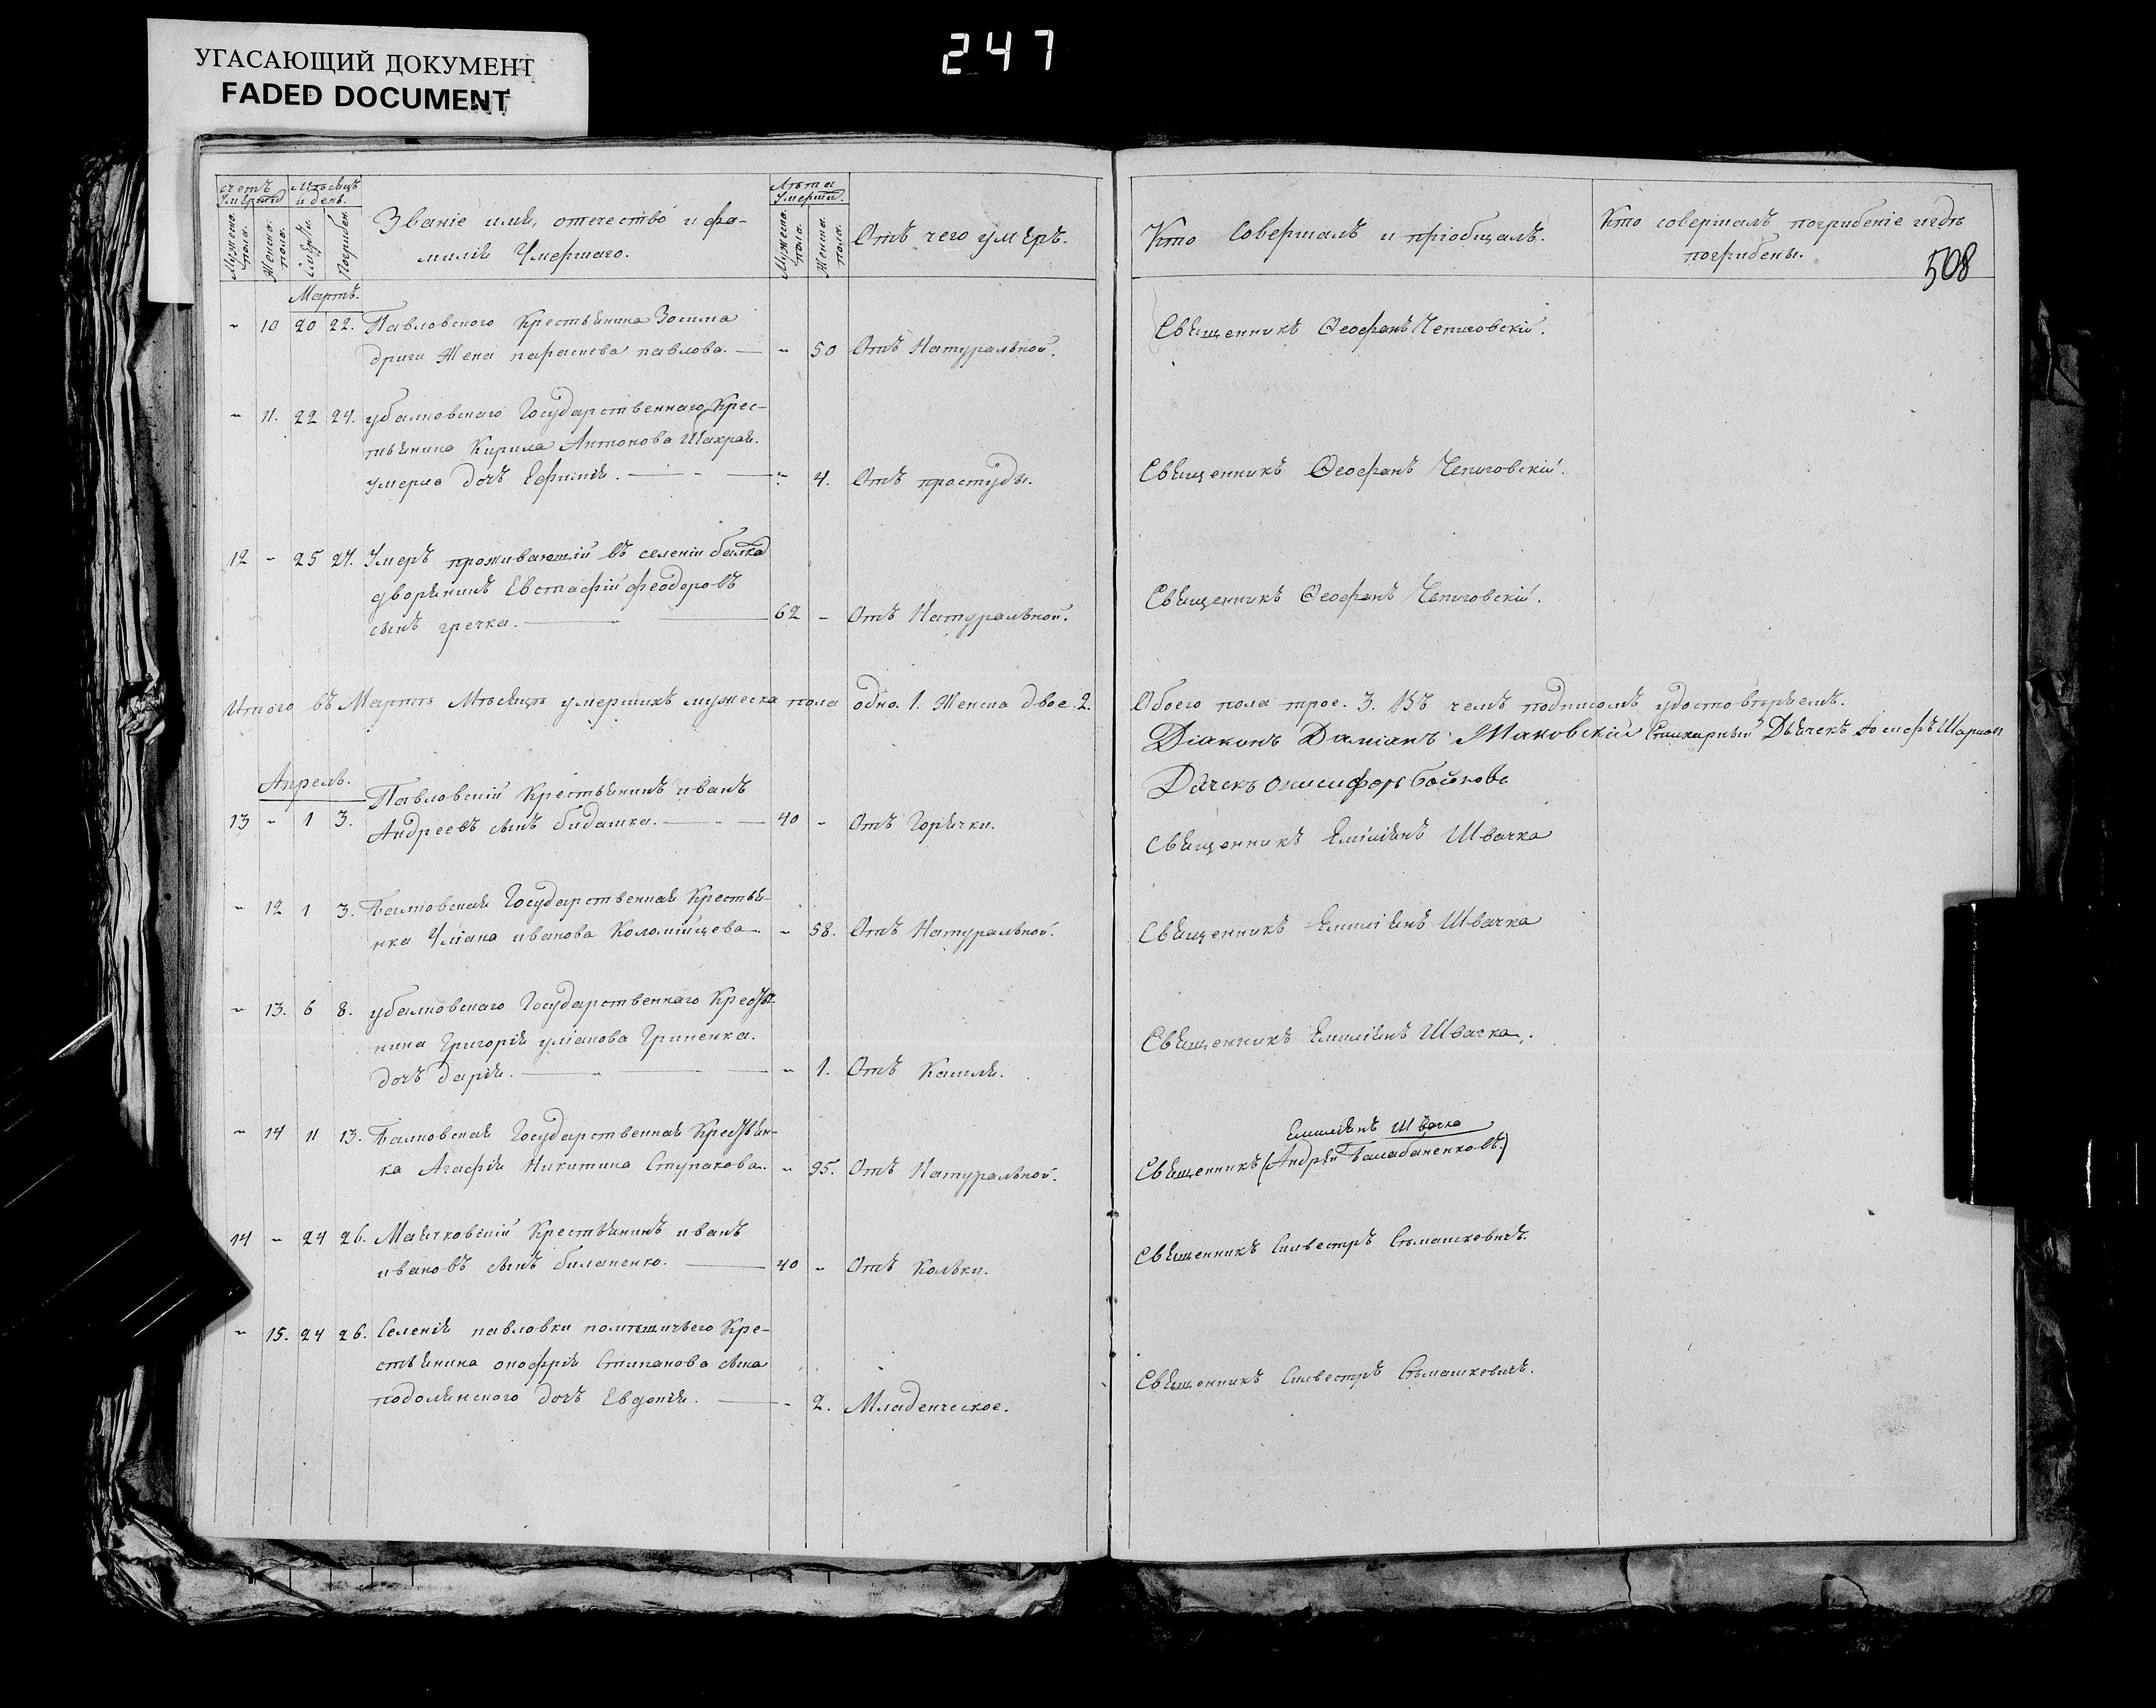 247
УГАСАЮЩИЙ ДОКУМЕНТ
FADED DOCUMENT
счетъ Умершихъ
Мѣсяцъ и день.
Званіе имя, отечество и фамилія Умершаго.
Лѣта Умерши.
Отъ чего умеръ.
Кто Совершалъ и пріобщалъ.
Кто совершалъ погрибеніе и гдѣ погрибены.
508
Мужеска. пола.
Женска. пола.
Смерти.
Погрибен.
Мужеска. пола.
Женска. пола.
Мартъ.
" 10 20 22. Павловского Крестьянина Зосима
Жена параскева павлова. — " 50 Отъ Натуральной.
Священникъ Ѳеофанъ Чепиговскій.
" 11. 22 24. убалковскаго Государственнаго Крес-
тьянина Кирила Антонова Шакрая.
умерла дочь Ефимія. — " 4. Отъ простуды.
Священникъ Ѳеофанъ Чепиговскій.
12 " 25 27. Умеръ проживающій въ селеніи балка
дворянинъ Евстафій феодоровъ
сынъ гречка. — 62 " Отъ Натуральной.
Священникъ Ѳеофанъ Чепиговскій.
Итого въ Мартѣ Мѣсяцѣ умершихъ мужеска пола одно. 1. Женска двое. 2. Обоего пола трое. 3. Въ чемъ подписомъ удостовѣряемъ.
Діаконъ Даміанъ Маковскій Дьячекъ Іосифъ
Дячекъ Онисифоръ
Апрель.
Павловскій Крестьянинъ иванъ
13 " 1 3. Андреевъ сынъ бидашка. — 40 " Отъ Горячки.
Священникъ Емиліянъ Швачка
" 12 1 3. Балковская Государственная Крестья-
нка Уліана иванова Коломійцева. " 58. Отъ Натуральной.
Священникъ Емиліянъ Швачка
" 13. 6 8. убалковскаго Государственнаго Крестья-
нина Григорія уліанова Гриненка.
дочь дарія. — " 1. Отъ Кашля.
Священникъ Емиліянъ Швачка.
" 14 11 13. Балковская Государственная Крестьян-
ка Агафія Никитина Ступакова. " 95. Отъ Натуральной.
Емиліянъ Швачка
Священникъ (Андрей Балабаненковъ)
14 " 24 26. Маячковскій Крестьянинъ иванъ
ивановъ сынъ билапенко. — 40 " Отъ Кольки.
Священникъ Сильвестръ Сѣмашкевичъ.
" 15. 24 26. Селенія павловки помѣщичьего Кре-
стьянина онофрія Стипанова сына
подолянского дочь Евдокія. — " 2. Младенческое.
Священникъ Сильвестръ Сѣмашкевичъ.